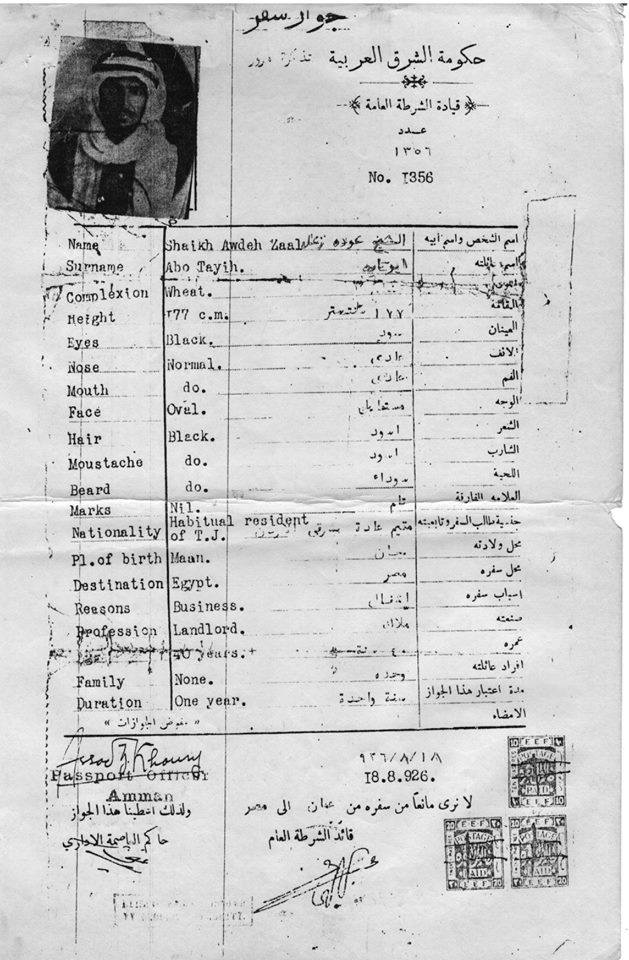 جواز سفر
حكومة الشرق العربية تذكرة مرور
قيادة الشرطة العامة
عدد
١٣٥٦
No. 1356
Name Shaikh Awdeh Zaal الشيخ عوده زعل اسم الشخص واسم ابيه
Surname Abo Tayih. ابو تايه اسم عائلته
Complexion Wheat.
Height 177 c.m. ١٧٧ سنتمتر القامة
Eyes Black. سود العينان
Nose Normal. عادي الانف
Mouth do. عادي الفم
Face Oval. مستطيل الوجه
Hair Black. اسود الشعر
Moustache do. اسود الشارب
Beard do. سوداء اللحية
Marks Nil. العلامه الفارقة
Nationality Habitual resident of T.J. مقيم عادة شرقي جنسية طالب السفر وتابعيته
Pl.of birth Maan. معان محل ولادته
Destination Egypt. مصر محل سفره
Reasons Business. اسباب سفره
Profession Landlord. ملاك صنعته
40 years. ٤٠ سنة عمره
Family None. وحده افراد عائلته
Duration One year. سنة واحدة مدة اعتبار هذا الجواز
« مفوض الجوازات » الامضاء
Khoury
Passport Officer
Amman
٩٢٦/٨/١٨
18.8.926.
لا نرى مانعاً من سفره من عمان الى مصر
ولذلك اعطينا هذا الجواز
قائد الشرطة العام
حاكم العاصمة الاداري
E.E.F.
POSTAGE
PAID
E.E.F.
E.E.F.
POSTAGE
PAID
E.E.F.
E.E.F.
POSTAGE
PAID
E.E.F.